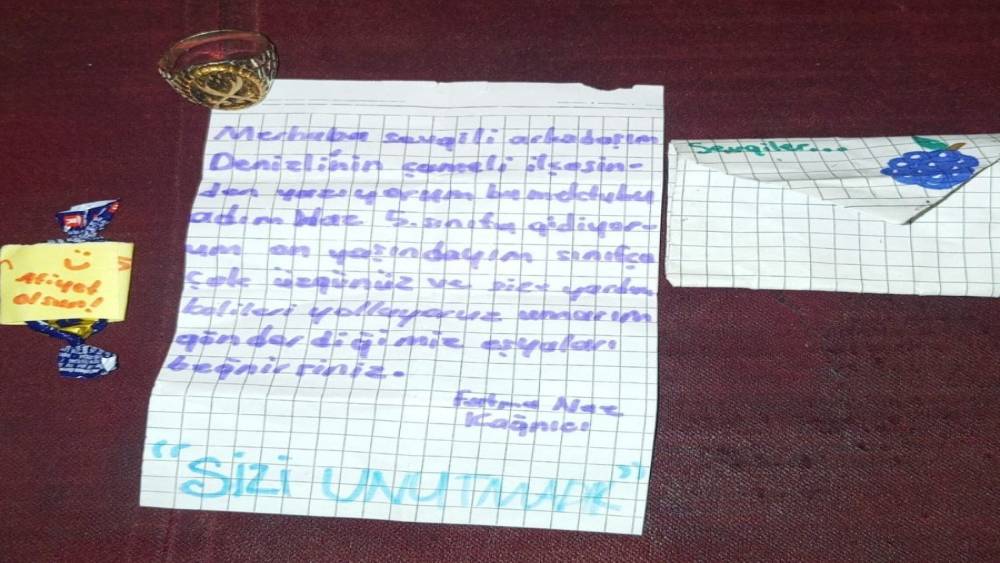 Merhaba sevgili arkadaşım
Denizli'nin çameli ilçesin-
den yazıyorum bu mektubu
adım Naz 5.sınıfa gidiyor-
um on yaşındayım sınıfça
çok üzgünüz ve size yardım
kolileri yolluyoruz umarım
gönderdiğimiz eşyaları
beğnirsiniz.
Fatma Naz
Kağnıcı
"SİZİ UNUTMADIK"
Sevgiler...
Afiyet
olsun!